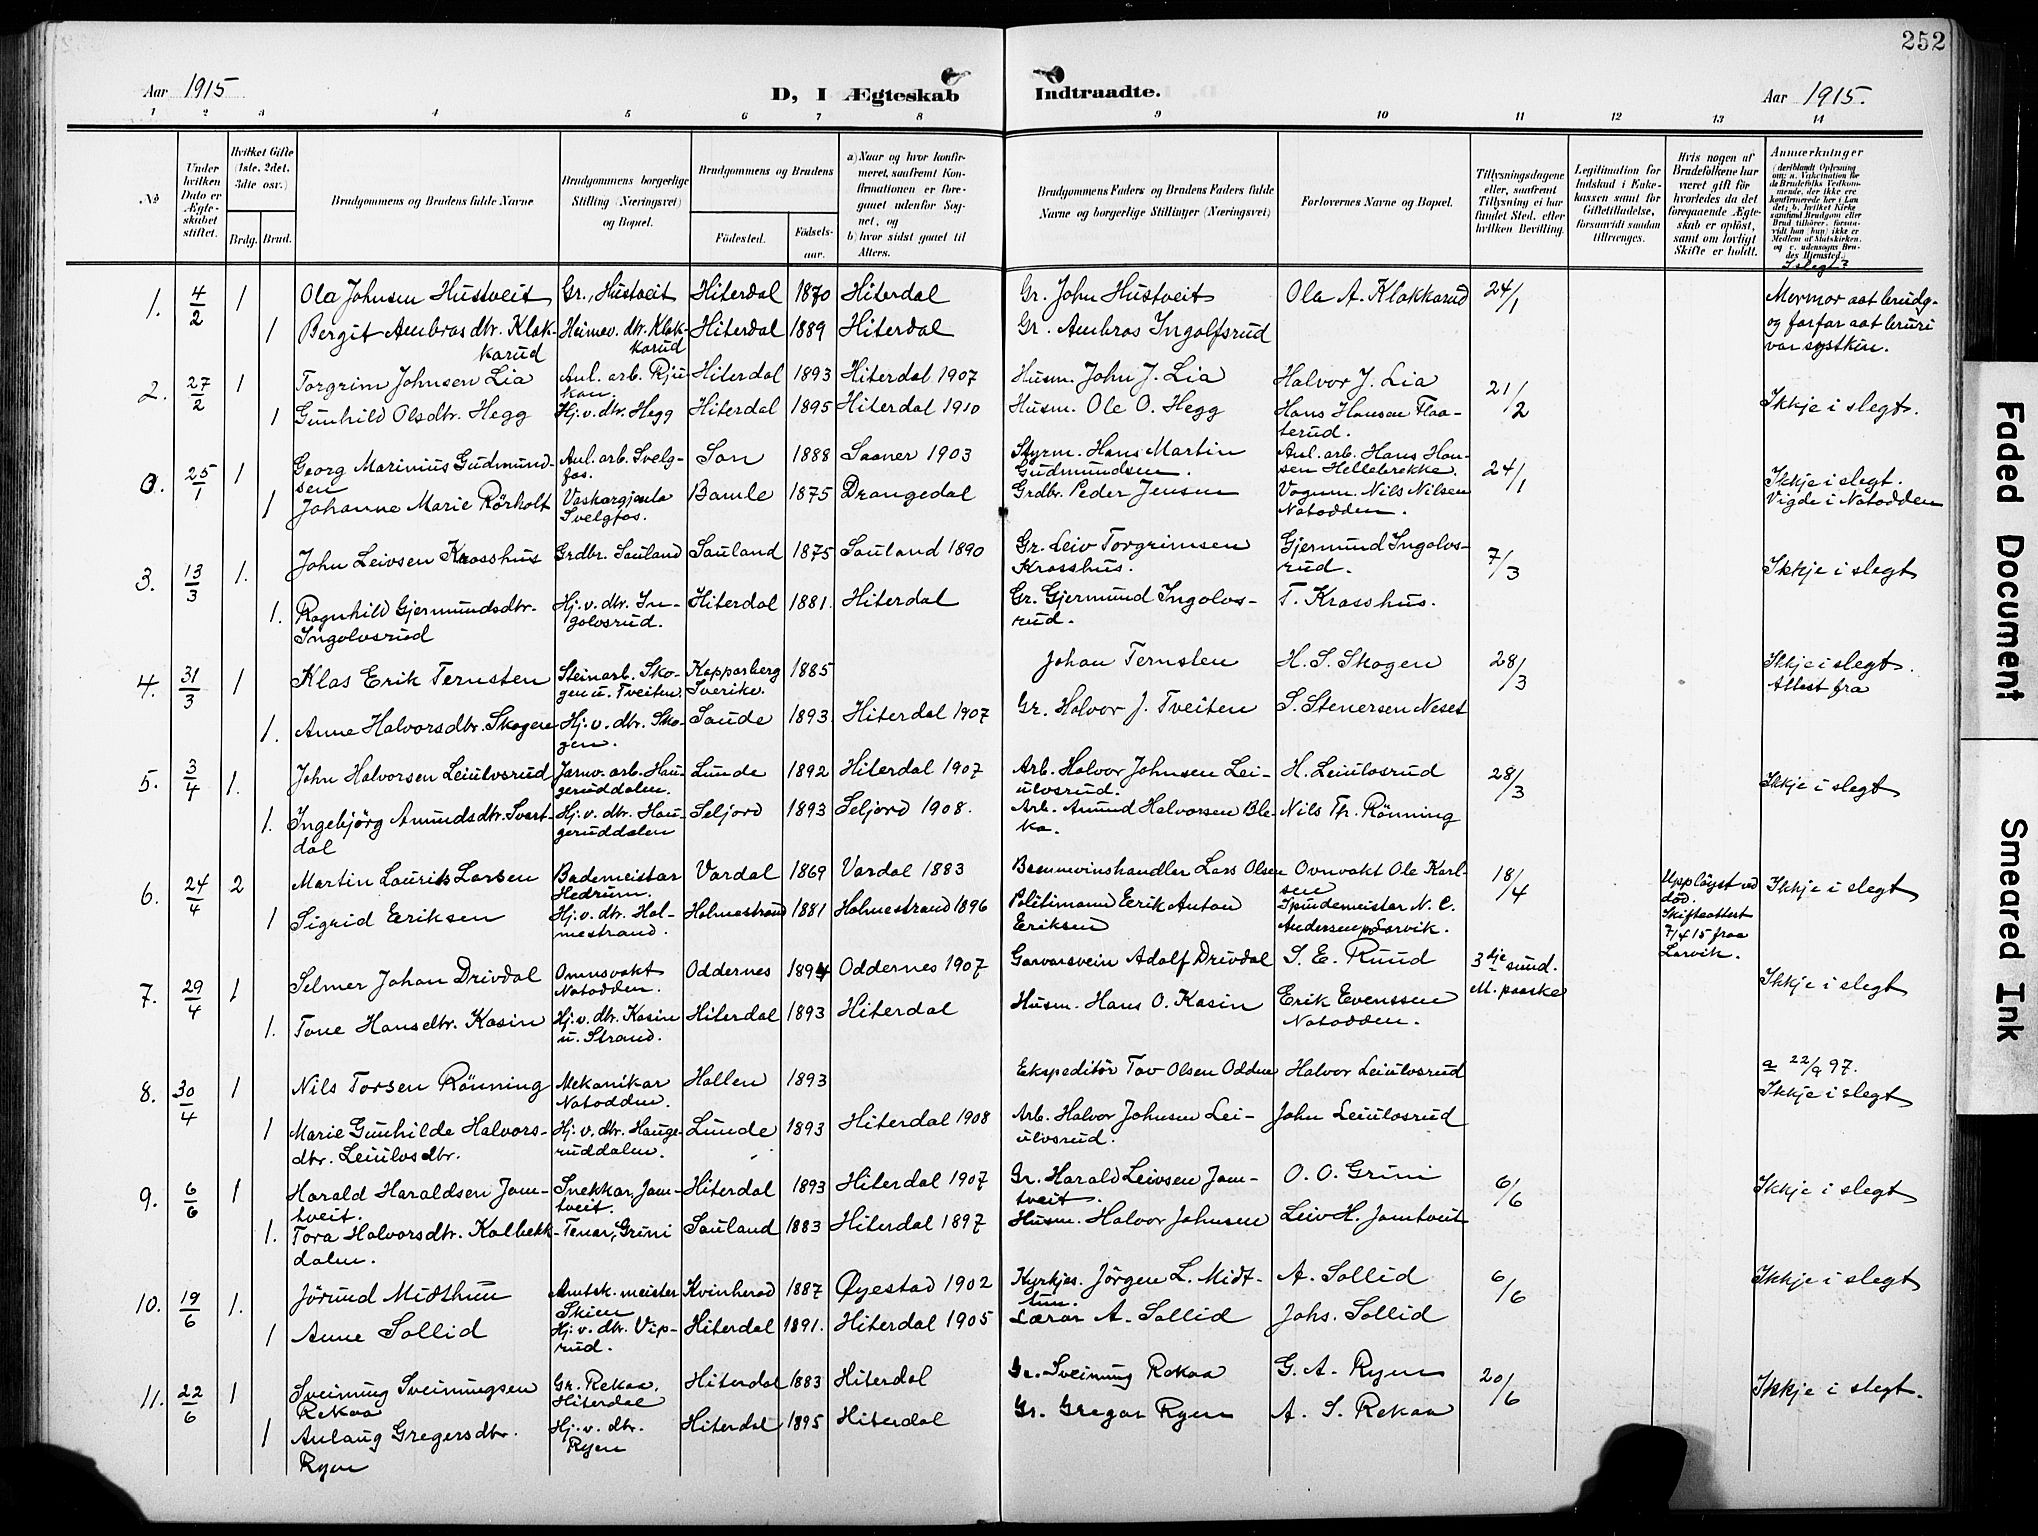 252
Aar 1915
D, I Ægteskab Indtraadte.
Aar 1915.
1 2 3 4 5 6 7 8 9 10 11 12 13 14
No
Under hvilken Dato er Ægteskabet stiftet.
Hvilket Gifte (1ste, 2det, 3die osv.)
Brdg. Brud.
Brudgommens og Brudens fulde Navne
Brudgommens borgerlige Stilling (Næringsvei) og Bopæl.
Brudgommens og Brudens
Fødested.
Fødselsaar.
a) Naar og hvor konfirmeret, saafremt Konfirmationen er foregaaet udenfor Sognet, og
b) hvor sidst gaaet til Alters.
Brudgommens Faders og Brudens Faders fulde Navne og borgerlige Stillinger (Næringsvei)
Forlovernes Navne og Bopæl.
Tillysningsdagene eller, saafremt Tillysning ei har fundet Sted, efter hvilken Bevilling.
Legitimation for Indskud i Enkekassen samt for Giftetilladelse, forsaavidt saadan tiltrænges.
Hvis nogen af Brudefolkene har været gift før hvorledes da det foregaaende Ægteskab er opløst, samt om lovligt Skifte er holdt.
Anmærkninger
Islegt?
1. 4/2 1 Ola Johnsen Hustveit Gr., Hustveit Hiterdal 1870 Hiterdal Gr. John Hustveit Ola A. Klakkarud 24/1 Mormor aat brudg.
og farfar aat bruri
var systkin.
1 Bergit Ambrosdtr. Klakkarud Heimev. dtr. Klakkarud Hiterdal 1889 Hiterdal Gr. Ambros Ingolfsrud
2. 27/2 1 Torgrim Johnsen Lia Anl. arb. Rjukan. Hiterdal 1893 Hiterdal 1907 Husm. John J. Lia Halvor J. Lia 21/2 Ikkje i slegt.
1 Gunhild Olsdtr. Hegg Hj. v. dtr. Hegg Hiterdal 1895 Hiterdal 1910 Husm. Ole O. Hegg Hans Hansen Flaaterud.
0. 25/1 1 Georg Marinius Gudmundsen Anl. arb. Svelgfos. Son 1888 Saaner 1903 Styrm. Hans Martin Gudmundsen. Anl. arb. Hans Hansen Hellebrekke. 24/1 Ikkje i slegt.
Vigde i Notodden
1 Johanne Marie Rörholt Vaskargjenta Svelgfos. Bamle 1875 Drangedal Grdbr. Peder Jensen Vognm. Nils Nilsen Notodden.
3. 13/3 1. John Leivsen Krosshus Grdbr. Sauland Sauland 1875 Sauland 1890 Gr. Leiv Torgrimsen Krosshus. Gjermund Ingolvsrud. 7/3 Ikkje i slegt
1. Ragnhild Gjermundsdtr. Ingolvsrud Hj. v. dtr. Ingolvsrud. Hiterdal 1881. Hiterdal Gr. Gjermund Ingolvsrud. T. Krosshus.
4. 31/3 1 Klas Erik Ternsten Steinarb. Skogen u. Tveiten. Kopparberg Sverike. 1885 Johan Ternsten H. S. Skogen 28/3 Ikkje i slegt.
Attest fra
1. Anne Halvorsdtr. Skogen Hj. v. dtr. Skogen. Saude 1893. Hiterdal 1907 Gr. Halvor J. Tveiten S. Stenersen Neset
5. 3/4 1. John Halvorsen Leiulvsrud Jarnv. arb. Haugeruddalen. Lunde 1892 Hiterdal 1907 Arb. Halvor Johnsen Leiulvsrud. H. Leiulvsrud 28/3 Ikkje i slegt
1. Ingebjörg Amundsdtr. Svartdal Hj. v. dtr. Haugeruddalen Seljord 1893 Seljord 1908. Arb. Amund Halvorsen Bleka. Nils Th. Rönning
6. 24/4 2 Martin Laurits Larsen Bademeistar Hedrum. Vardal 1869 Vardal 1883 Brennevinshandler Lars Olsen Ovnvakt Ole Karlsen 18/4 Upplöyst ved död. Skifteattest 7/4 15 fraa Larvik. Ikkje i slegt
1 Sigrid Eriksen Hj. v. dtr. Holmestrand. Holmestrand 1881 Holmestrand 1896 Politimann Erik Anton Eriksen N. C. Andersen Larvik.
7. 29/4 1 Selmer Johan Drivdal Omnsvakt Notodden. Oddernes 1894 Oddernes 1907 Garvarsvein Adolf Drivdal S. E. Ruud 3dje sund. M. paaske Ikkje i slegt
1. Tone Hansdtr. Kasin Hj. v. dtr. Kasin u. Strand. Hiterdal 1893 Hiterdal Husm. Hans O. Kasin Erik Evenssen Notodden.
8. 30/4 1 Nils Torsen Rönning Mekanikar Notodden. Hollen 1893 Ekspeditör Tov Olsen Odden Halvor Leiulvsrud a 22/9 97.
Ikkje i slegt
1 Marie Gunhilde Halvorsdtr. Leiulvsdtr. Hj. v. dtr. Haugeruddalen. Lunde 1893 Hiterdal 1908 Arb. Halvor Johnsen Leiulvsrud. John Leiulvsrud
9. 6/6 1 Harald Haraldsen Jamtveit. Snekkar, Jamtveit. Hiterdal 1893 Hiterdal 1907 Gr. Harald Leivsen Jamtveit. O. O. Grini 6/6 Ikkje i slegt
1. Tora Halvorsdtr. Kolbekkdalen. Tenar, Grini Sauland 1883 Hiterdal 1897 Husm. Halvor Johnsen Leiv H. Jamtveit
10. 19/6 1. Jörund Midthun Amtsk. meister Skien Kvinherad 1887 Øyestad 1902 Kyrkjes. Jörgen L. Midttun. A. Sollid 6/6 Ikkje i slegt
1 Anne Sollid Hj. v. dtr. Viprud. Hiterdal 1891. Hiterdal 1905 Lærar A. Sollid Johs. Sollid
11. 22/6 1 Sveinung Sveinungsen Rekaa Gr. Rekaa, Hiterdal Hiterdal 1883 Hiterdal Gr. Sveinung Rekaa G. A. Ryen 20/6 Ikkje i slegt.
1 Anlaug Gregersdtr. Ryen Hj. v. dtr. Ryen Hiterdal 1895 Hiterdal Gr. Gregar Ryen A. S. Rekaa
Faded Document
Smeared Ink